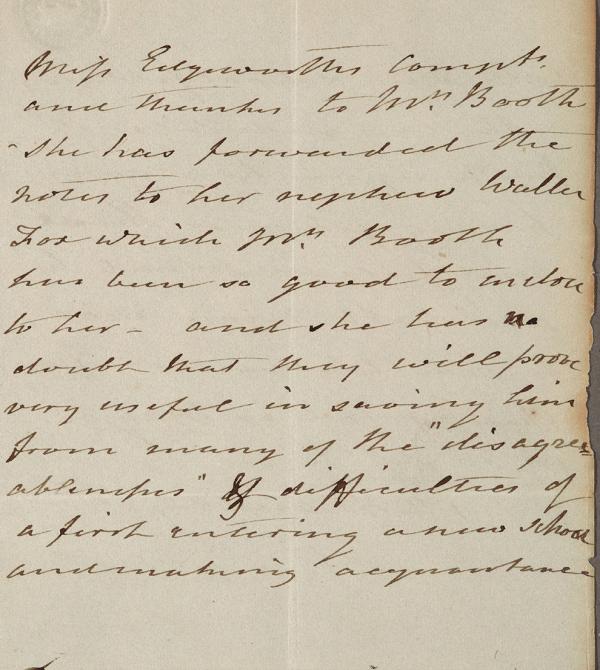 Miss Edgeworths Compts.
and thanks to Mrs Booth
- She has forwarded the
notes to her nephew Waller
For which Mrs Booth
has been so good to inclose
to her - and she has no
doubt that they will prove
very useful in saving him
from many of the "disagree=
ablenesses" & difficulties of
a first entering a new school
and making acquaintance